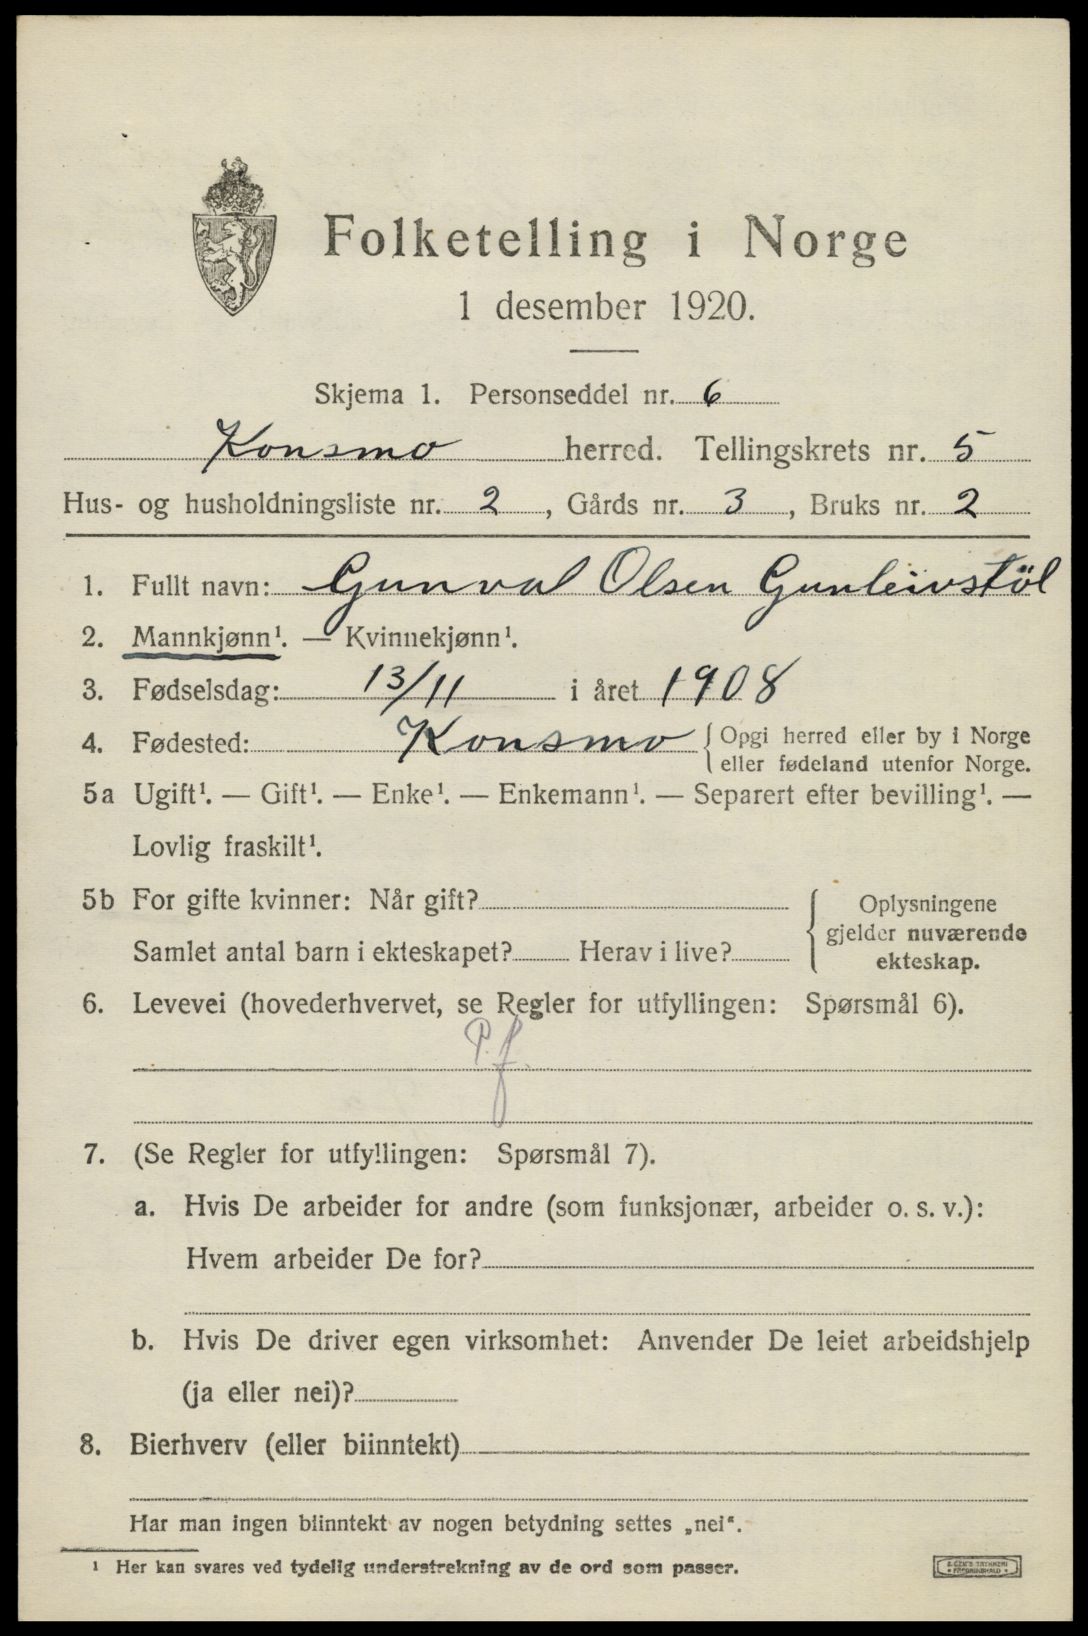 Folketelling i Norge
1 desember 1920.
Skjema 1. Personseddel nr. 6
Konsmo herred. Tellingskrets nr. 5
Hus- og husholdningsliste nr. 2, Gårds nr. 3, Bruks nr. 2
1. Fullt navn: Gunval Olsen Gunleivstöl
2. Mannkjønn¹. — Kvinnekjønn¹.
3. Fødselsdag: 13/11 i året 1908
4. Fødested: Konsmo { Opgi herred eller by i Norge
eller fødeland utenfor Norge.
5a Ugift¹. — Gift¹. — Enke¹. — Enkemann¹. — Separert efter bevilling¹. —
Lovlig fraskilt¹.
5b For gifte kvinner: Når gift?
Samlet antal barn i ekteskapet? Herav i live?
{ Oplysningene
gjelder nuværende
ekteskap.
6. Levevei (hovederhvervet, se Regler for utfyllingen: Spørsmål 6).
P.f.
7. (Se Regler for utfyllingen: Spørsmål 7).
a. Hvis De arbeider for andre (som funksjonær, arbeider o. s. v.):
Hvem arbeider De for?
b. Hvis De driver egen virksomhet: Anvender De leiet arbeidshjelp
(ja eller nei)?
8. Bierhverv (eller biinntekt)
Har man ingen biinntekt av nogen betydning settes „nei“.
¹ Her kan svares ved tydelig understrekning av de ord som passer.